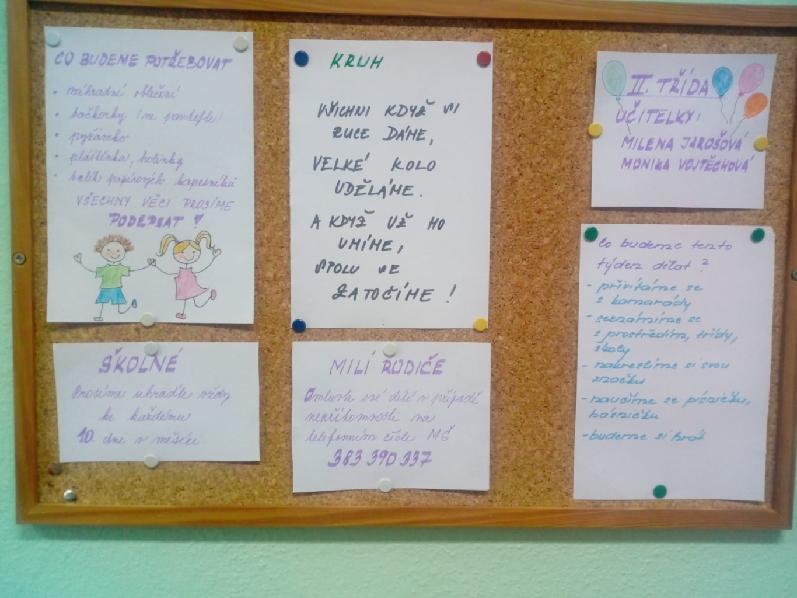 CO BUDEME POTŘEBOVAT
• náhradní oblečení
• bačkorky (ne pantofle)
• pyžámko
• pláštěnka, holínky
• balík papírových kapesníků
VŠECHNY VĚCI PROSÍME
PODEPSAT !
ŠKOLNÉ
Prosíme uhraďte vždy
ke každému
10. dni v měsíci
KRUH
VŠICHNI KDYŽ SI
RUCE DÁME,
VELKÉ KOLO
UDĚLÁME.
A KDYŽ UŽ HO
UMÍME,
SPOLU SE
ZATOČÍME !
MILÍ RODIČE
Omluvte své dítě v případě
nepřítomnosti na
telefonním čísle MŠ
383 390 337
II. TŘÍDA
UČITELKY:
MILENA JAROŠOVÁ
MONIKA VOJTĚCHOVÁ
Co budeme tento
týden dělat ?
- přivítáme se
s kamarády
- seznámíme se
s prostředím, třídy,
školy
- nakreslíme si svou
značku
- naučíme se písničku,
básničku
- budeme si hrát